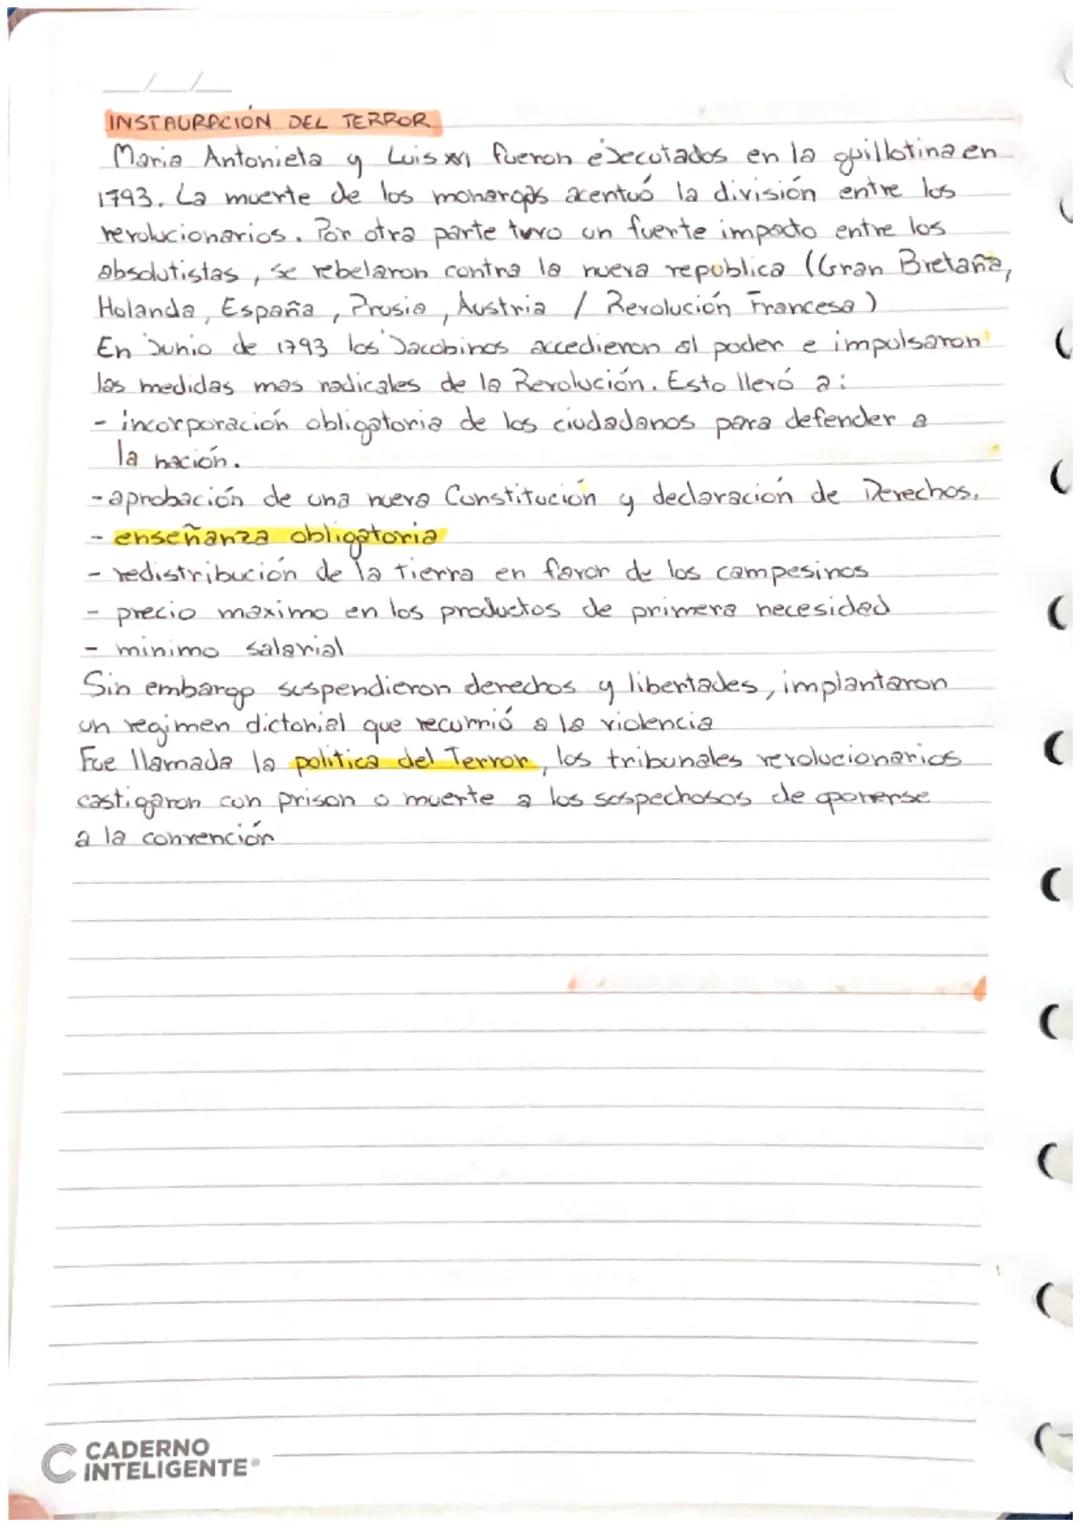 INSTAURACIÓN DEL TERROR
Maria Antonieta y Luis XVI fueron eJecutados en la guillotina en
1793. La muerte de los monargas acentuó la división entre los
revolucionarios. Por otra parte tuvo un fuerte impacto entre los
absolutistas, se rebelaron contra la nueva republica (Gran Bretaña,
Holanda, España, Prusia, Austria / Revolución Francesa)
En Junio de 1793 los Jacobinos accedieron al poder e impulsaron
las medidas mas radicales de la Revolución. Esto llevó a:
- incorporación obligatoria de los ciudadanos para defender a
la nación.
- aprobación de una nueva Constitución y declaración de Derechos.
- enseñanza obligatoria
- redistribución de la tierra en favor de los campesinos
- precio maximo en los productos de primera necesidad
- minimo salarial
Sin embargo suspendieron derechos y libertades, implantaron
un regimen dictorial que recurrió a la violencia
Fue llamada la politica del Terror, los tribunales revolucionarios
castigaron con prison o muerte a los sospechosos de oponerse
a la convención
CADERNO
INTELIGENTE®